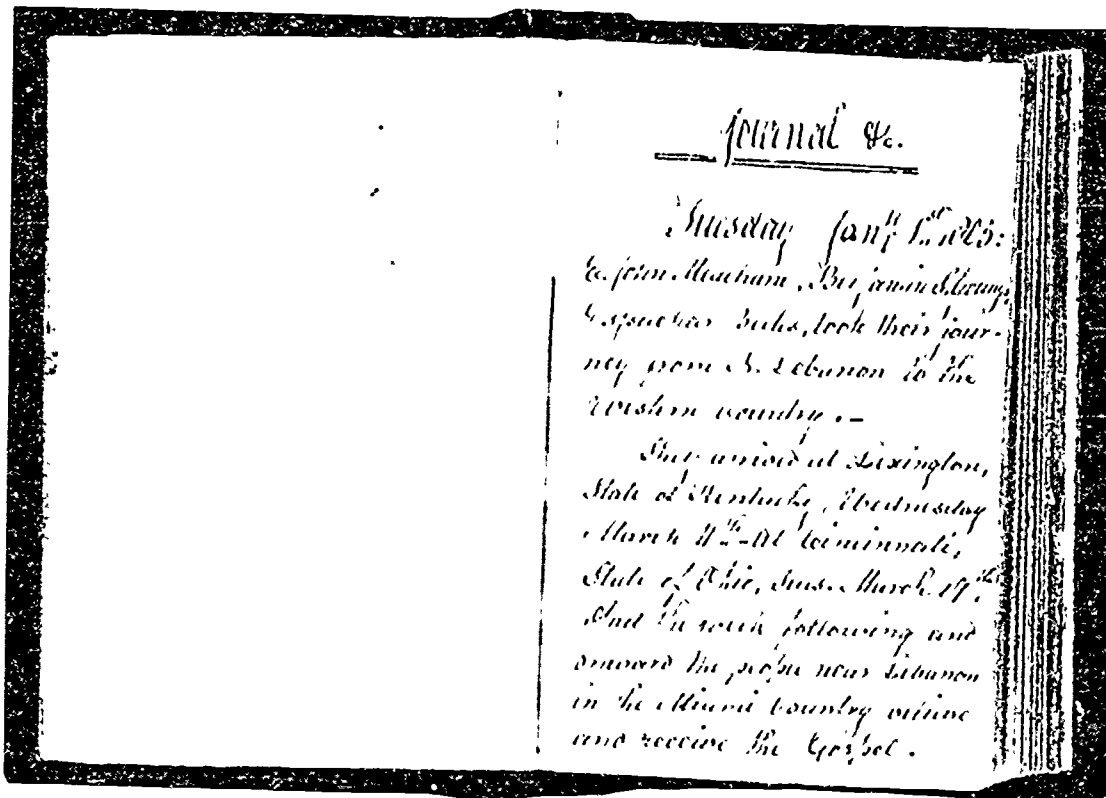 Journal &c.
Tuesday Jany 1st 1805:
John Meacham, Benjamin S. Youngs,
took their jour-
ney from N. Lebanon to the
western country. -
They arrived at Lexington,
State of Kentucky, Wednesday
March At Cincinnati,
State of Ohio, March
And the week following and
onward the people near Lebanon
in the Miami Country
and receive the Gospel.